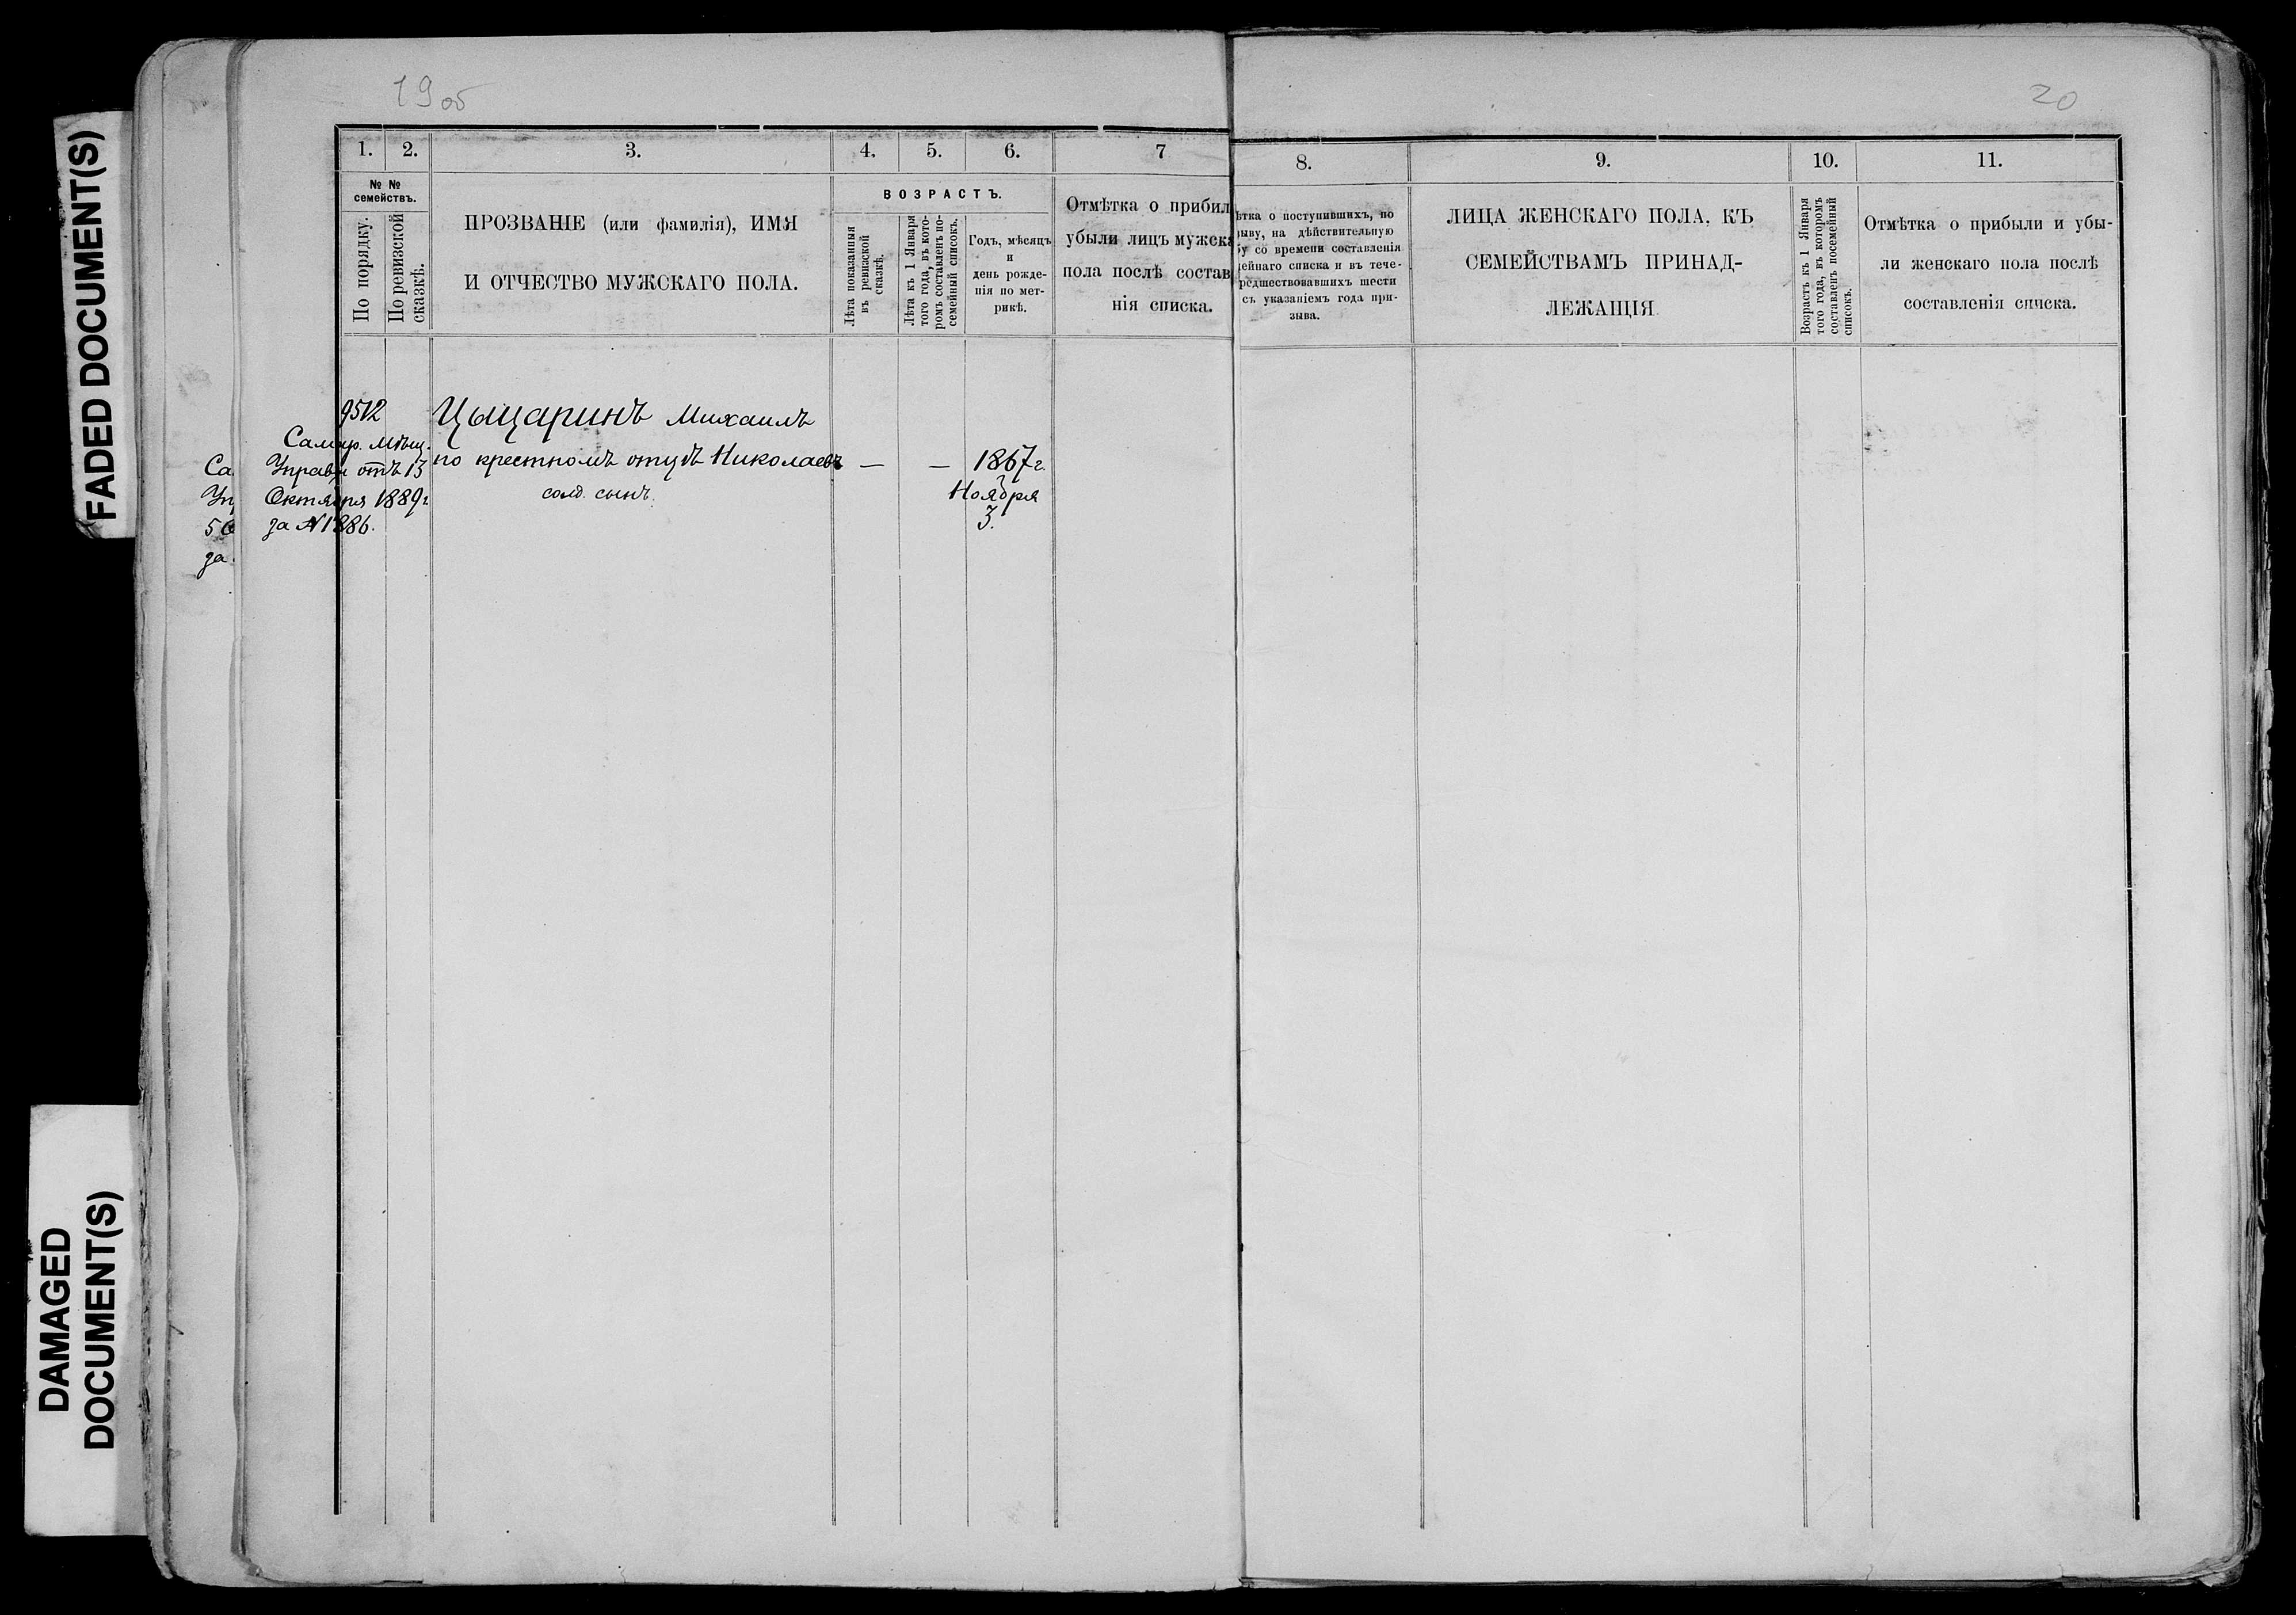 FADED DOCUMENT(S)
DAMAGED
DOCUMENT(S)
19об
1.
2.
3.
4.
5.
6.
7
№ №
семействъ.
По порядку.
По ревизской
сказкѣ.
ПРОЗВАНІЕ (или фамилія), ИМЯ
И ОТЧЕСТВО МУЖСКАГО ПОЛА.
ВОЗРАСТЪ.
Лѣта показанныя
въ ревизской
сказкѣ.
Лѣта къ 1 Января
того года, въ кото-
ромъ составленъ по-
семейный списокъ.
Годъ, мѣсяцъ
и
день рожде-
нія по мет-
рикѣ.
Отмѣтка о прибил
убыли лицъ мужска
пола послѣ состав
нія списка.
9512
Самар. Мѣщ.
Управы отъ 13
Октября 1889г.
за № 1886.
Са
Уп
5
за
Цыцаринъ Михаилъ
по крестномъ отцѣ Николаевъ
солд. сынъ.
—
—
1867г.
Ноября
3.
20
8.
9.
10.
11.
ѣтка о поступившихъ, по
ыву, на дѣйствительную
бу со времени составленія
ейнаго списка и въ тече-
редшествовавшихъ шести
съ указаніемъ года при-
зыва.
ЛИЦА ЖЕНСКАГО ПОЛА, КЪ
СЕМЕЙСТВАМЪ ПРИНАД-
ЛЕЖАЩІЯ
Возрастъ къ 1 Января
того года, въ которомъ
составленъ посемейный
списокъ.
Отмѣтка о прибыли и убы-
ли женскаго пола послѣ
составленія списка.